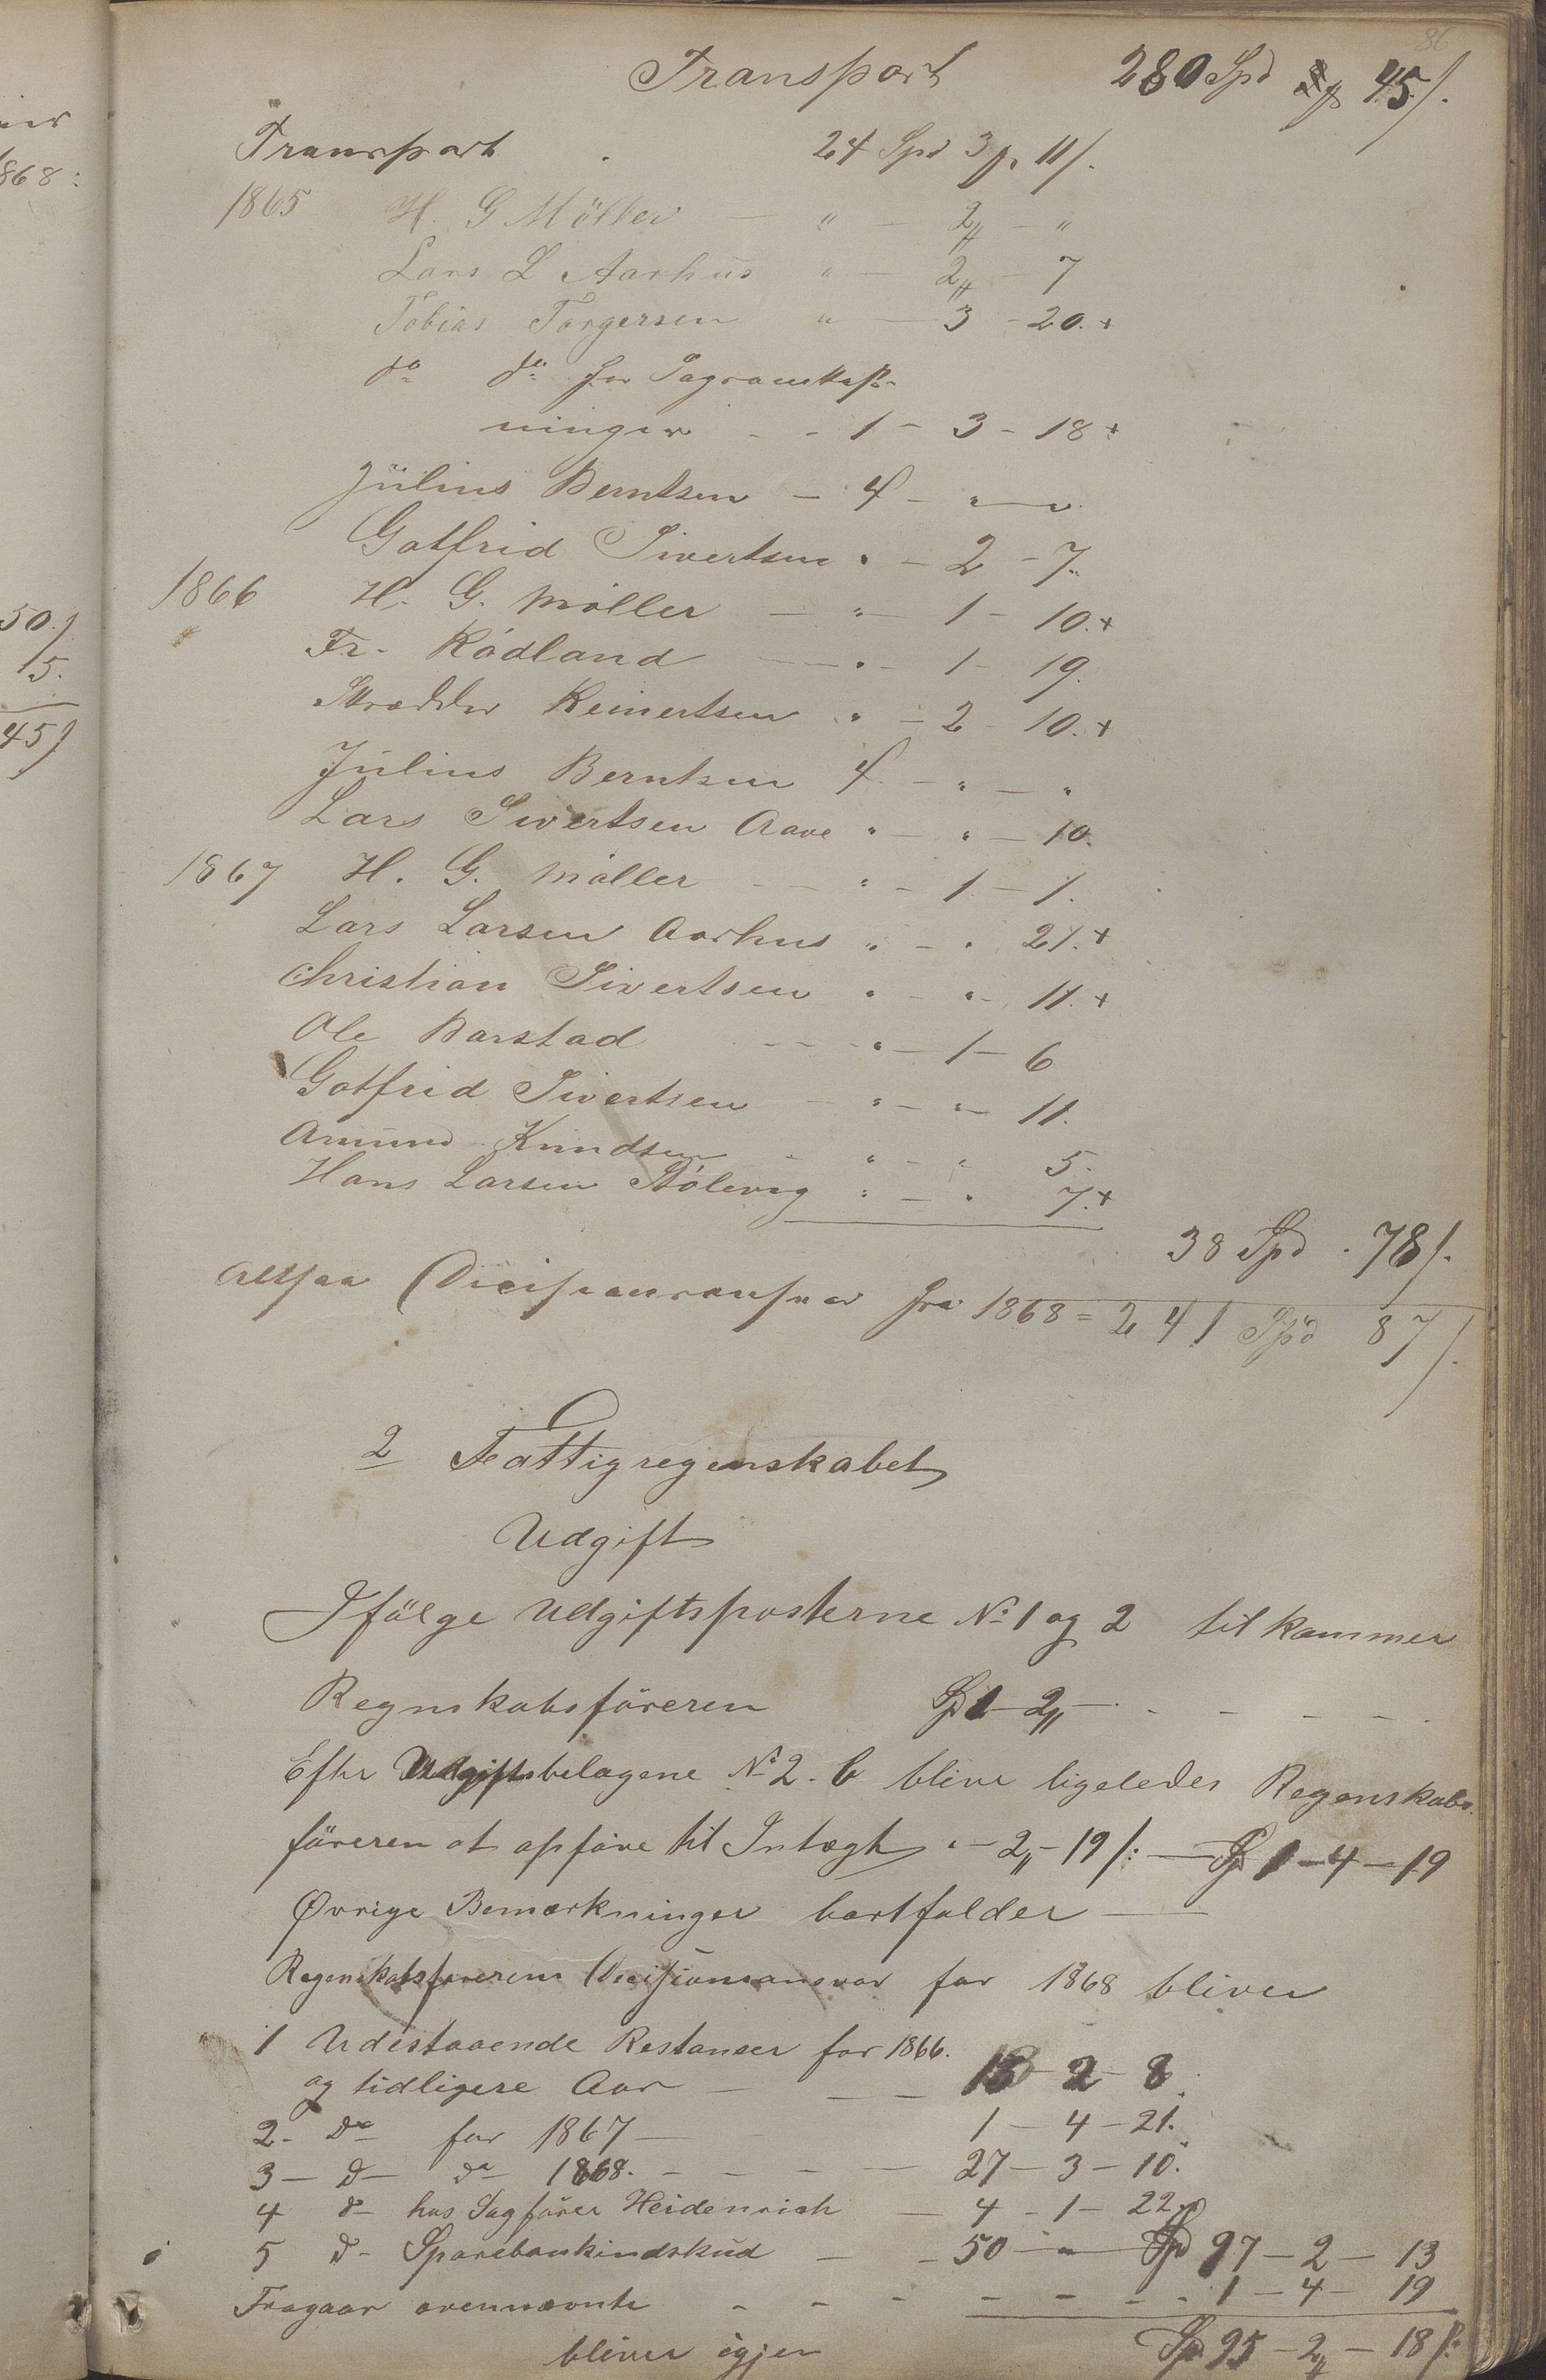 86
Transport 280 Spd 45/.
Transport . 24 Spd 3 ƒ. 11/.
1865 H. G Möller — " — 2„ — "
Lars L Aarhus " — 2„ — 7
Tobias Torgersen " — 3 - 20.+
do do for
ninger - - 1 - 3 - 18+
Julius Berntsen - 4 - " — "
Gotfrid Sivertsen " - 2 - 7.
1866 H. G. Möller — " — 1 - 10.+
Fr. Rödland — " - 1 - 19.
Skrædder Reinertsen " - 2 - 10.+
Julius Berntsen 4 - " - "
Lars Sivertsen Aave " - " - 10.
1867 H. G. Möller - - " - 1 - 1.
Lars Larsen Aarhus " - " 21.+
Christian Sivertsen " - " - 11.+
Ole Barstad - - " - 1 - 6
Gotfrid Sivertsen - " - " - 11.
Amund Knudsen - " - " 5.
Hans Larsen Stölevig " - " 7.+
38 Spd . 78/.
Altsaa Decisionsansvar fra 1868 = 241 Spd 87/.
2 Fattigregenskabet
Udgift
Ifölge Udgiftsposterne No 1 og 2 tilkommer
Regnskabsföreren Spd 1 - 2„ -
Efter Udgiftsbelagene No 2. b blive ligeledes Regenskabs
föreren at opföre til Intægt " - 2„ - 19/: — Spd 1 - 4 - 19
Øvrige Bemærkninger bortfalder —
Regenskabsförerens Decisionsansvar for 1868 bliver
1 Udestaaende Restanser for 1866.
og tidligere Aar — — — 13 - 2 - 8.
2 - do for 1867 — 1 - 4 - 21.
3 — d — do 1868. - - - — 27 - 3 - 10.
4 d - hos Sagförer Heidenrich — 4 - 1 - 22
5 d - Sparebankindskud — - 50 - " - Spd 97 - 2 - 13
Fragaar ovennævnte - - - - - - - 1 - 4 - 19
bliver igjen Spd 95 - 2„ - 18/:
ner
1868:
50/
15.
45/